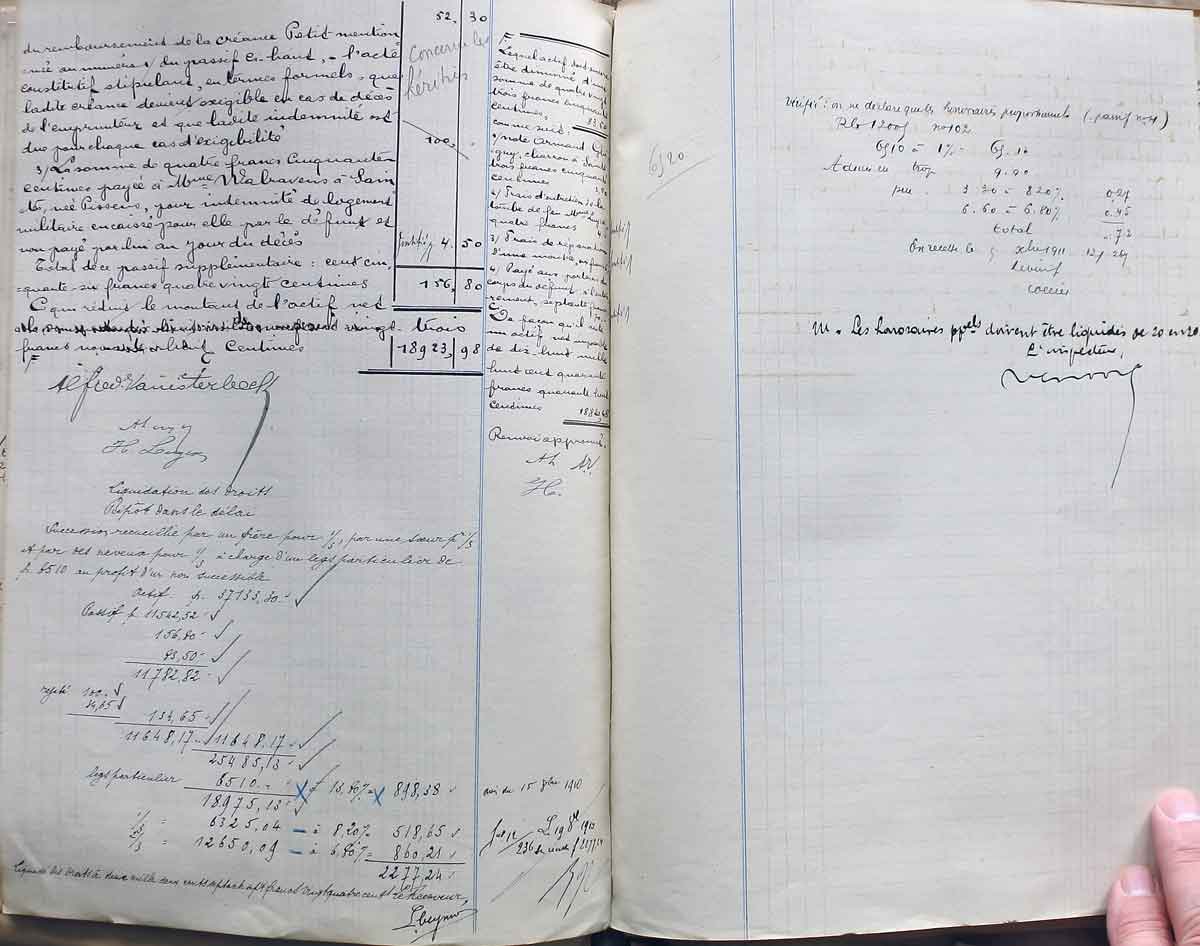 52. 30
du remboursement de la créance Petit mention
née au numéro 5/ du passif ci-haut, - l'acte
constitutif stipulant, en termes formels, que
ladite créance devient exigible en cas de décès
de l'emprunteur et que ladite indemnité est
due pour chaque cas d'exigibilité 100,
3/ La somme de quatre francs cinquante
centimes payée à Mme Walravens à
née Pissens, pour indemnité de logement
militaire encaissé pour elle par le défunt et
non payé par lui au jour du décès justifié 4. 50
Total de ce passif supplémentaire: cent cin,
quante-six francs quatre vingt centimes 156, 80
Ce qui réduit le montant de l'actif net
vingt-trois
francs centimes 18923, 98
Concerne les
héritiers
Alfred Vanisterbeck
H.
Liquidation des droits
Dépôt dans le délai
Succession recueillie par un frère pour 1/3, par une sœur pr 1/3
et par des neveux pour 1/3 à charge d'un legs particulier de
f. 6510 au profit d'un non successible
Actif f. 37133,30
Passif f 11542,52
156,80
83,50
11782,82
rejeté 100
34,65
134,65
11648,17 11648,17
25485,13
legs particulier 6510 à 13,80% = 898,38
18975,13
1/3 = 6325,04 - à 8,20% = 518,65
2/3 = 12650,09 - à 6,80% = 860,21
2277,24
Liquidé les droits à deux mille deux cent septante sept francs vingt quatre cent. Le Receveur,
Lequel actif doit encore
être diminué d'une
somme de quatre vingt
trois francs cinquante
centimes, 83.50
comme suit:
1/ note Armand
charron à
trois francs cinquante
centimes
2/ Frais d'entretien de la
tombe de feu Mme
quatre francs
3/ Frais de réparation
d'une
4/ Payé aux porteurs du
corps du défunt à l'enter
rement, septante
De façon qu'il reste
un actif net imposable
de dix huit mille
huit cent quarante
francs quarante huit
centimes 18840,48
Renvoi approuvé,
Ah AV.
H.
avis du 15 8bre 1910
Le 19 8bre 1910
236 f 2277,24
6520
Vérifié: on ne déclare que les honoraires proportionnels (passif no 4)
no 102
6510 à 1% = 65.10
Admis en trop 9.90
pu. 3.30 à 8.20% 0.27
6.60 à 6.80% 0.45
total 0.72
En recette le 5 1911
M. Les honoraires ppels doivent être liquidés de 20 en 20
L'inspecteur,